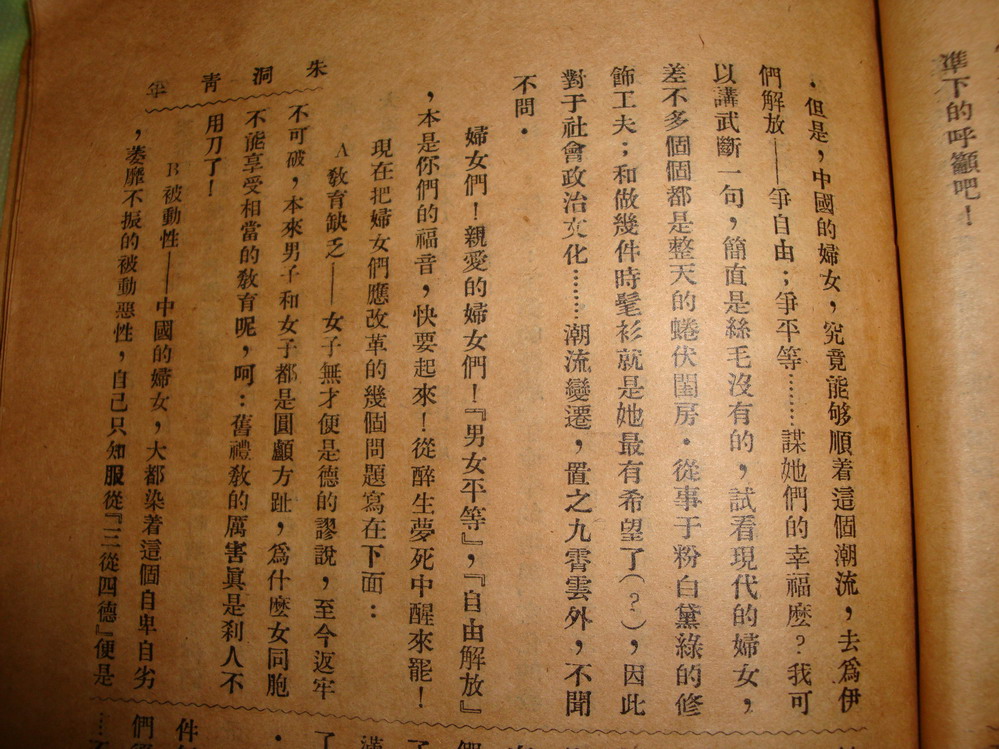 準下的呼籲吧！
．但是，中國的婦女，究竟能够順着這個潮流，去爲伊
們解放——爭自由；爭平等………謀她們的幸福麼？我可
以講武斷一句，簡直是絲毛沒有的，試看現代的婦女，
差不多個個都是整天的蜷伏閨房．從事于粉白黛綠的修
飾工夫；和做幾件時髦衫就是她最有希望了（？），因此
對于社會政治文化………潮流變遷，置之九霄雲外，不聞
不問．
婦女們！親愛的婦女們！『男女平等』，『自由解放』
，本是你們的福音，快要起來！從醉生夢死中醒來罷！
現在把婦女們應改革的幾個問題寫在下面：
A 敎育缺乏——女子無才便是德的謬說，至今返牢
不可破，本來男子和女子都是圓顱方趾，爲什麼女同胞
不能享受相當的敎育呢，呵：舊禮敎的厲害眞是刹人不
用刀了！
B 被動性——中國的婦女，大都染着這個自卑自劣
，萎靡不振的被動惡性，自己只知服從『三從四德』便是
朱洞靑